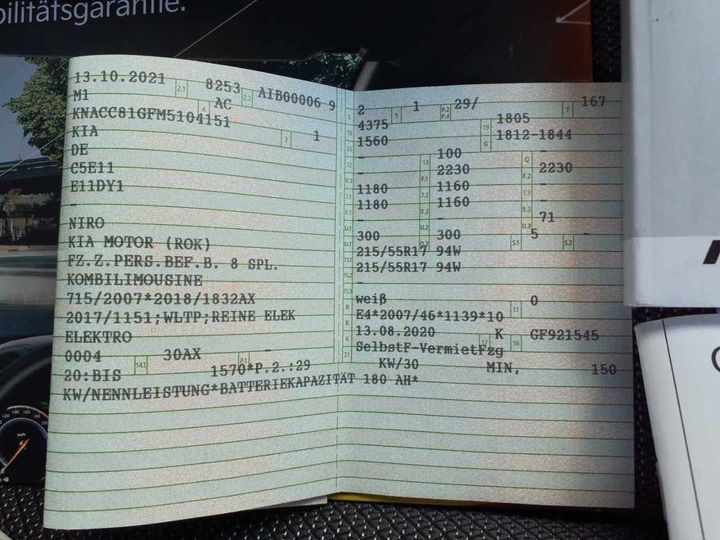 bilitätsgarantie.
13.10.2021 2.1 8253 2.2 AIB00006 9
M1 4 AC
KNACC81GFM5104151
KIA 1
DE
C5E11
E11DY1
-
NIRO
KIA MOTOR (ROK)
FZ.Z.PERS.BEF.B. 8 SPL.
KOMBILIMOUSINE
715/2007*2018/1832AX
2017/1151;WLTP;REINE ELEK
ELEKTRO
0004 14.1 30AX P.1
20:BIS 1570*P.2.:29
KW/NENNLEISTUNG*BATTERIEKAPAZITÄT 180 AH*
2 9 1 P.2 P.4 29/ T 167
4375 19 1805
1560 G 1812-1844
- 13 100 Q -
2230 2230
1180 1160 -
1180 1160 -
- - 71
300 300 S.1 5 S.2 -
215/55R17 94W
215/55R17 94W
-
weiß 11 0
E4*2007/46*1139*10
13.08.2020 17 K 16 GF921545
21 SelbstF-VermietFzg
KW/30 MIN, 150